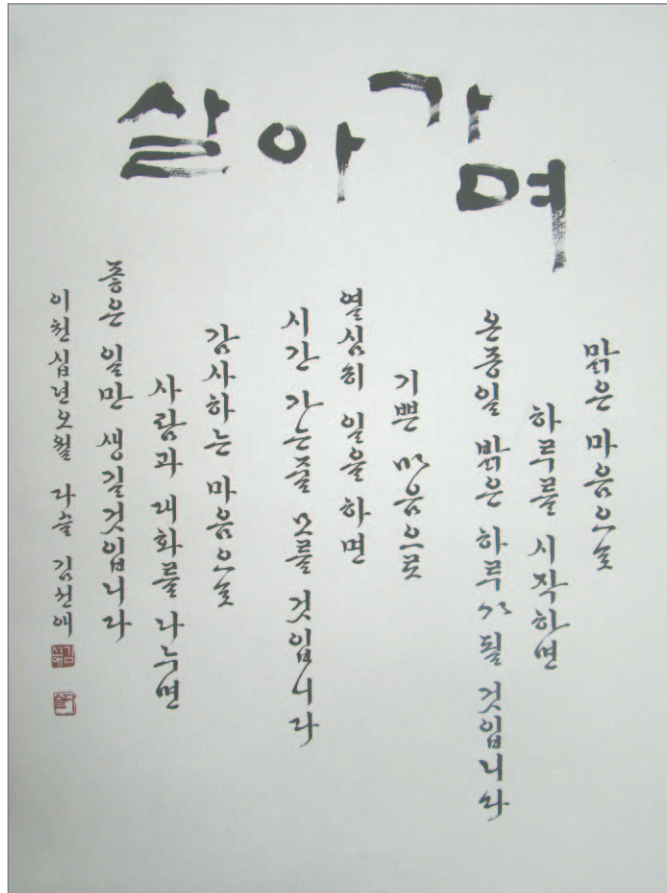 살아가며
맑은 마음으로
하루를 시작하면
온종일 밝은 하루가 될 것입니다
기쁜 마음으로
열심히 일을 하면
시간 가는줄 모를 것입니다
감사하는 마음으로
사람과 대화를 나누면
좋은 일만 생길것입니다
이천십년오월 다솔 김선애